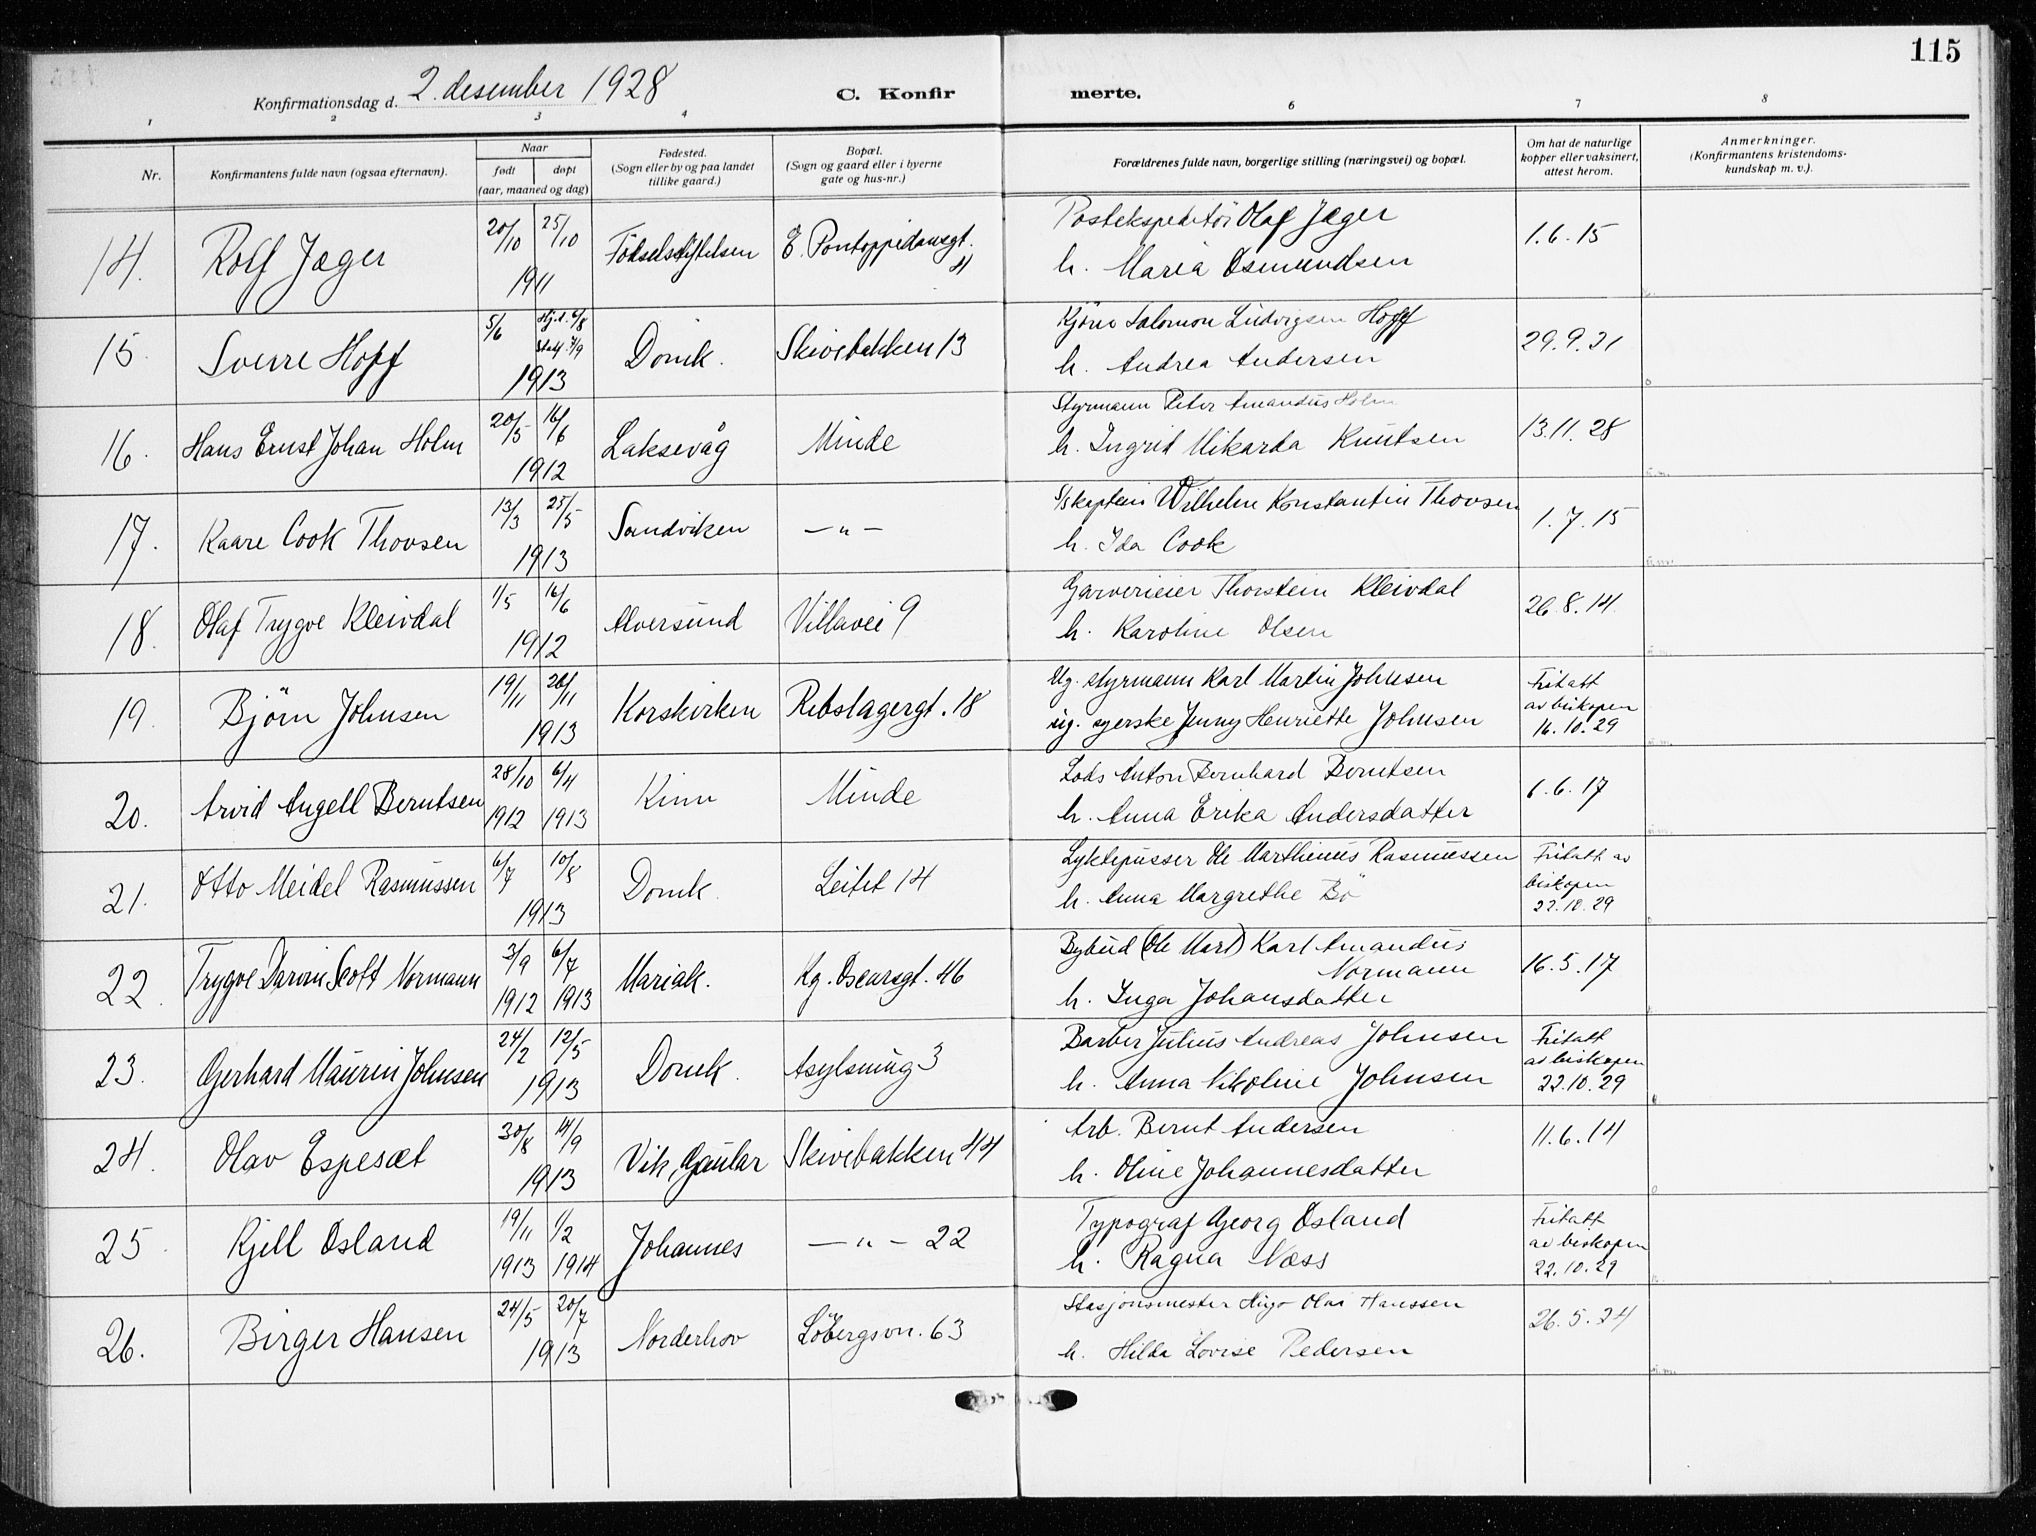 115
Konfirmationsdag d. 2. desember 1928 C. Konfir merte.
1 2 3 4 6 7 8
Nr. Konfirmantens fulde navn (ogsaa efternavn). Naar født døpt (aar, maaned og dag) Fødested. (Sogn eller by og paa landet tillike gaard.) Bopæl. (Sogn og gaard eller i byerne gate og hus-nr.) Forældrenes fulde navn, borgerlige stilling (næringsvei) og bopæl. Om hat de naturlige kopper eller vaksinert, attest herom. Anmerkninger. (Konfirmantens kristendoms-kundskap m. v.).
14. Rolf Jæger 20/10 25/10 1911 Fødselsstiftelsen E. Pontoppidansgt. 4 Postekspeditør Olaf Jæger 1.6.15
h. Maria Osmundsen
15. Sverre Hopf 5/6 Hj.d. 6/8 Stadf. 7/9 1913 Domk. Skivebakken 13 Kjører Salomon Ludvigsen Hopf 29.9.21
h. Andrea Andersen
16. Hans Ernst Johan Holm 20/5 16/6 1912 Laksevåg Minde Styrmann Peter Amandus Holm 13.11.28
h. Ingrid Mikarda Knutsen
17. Kaare Cook Thovsen 13/3 25/5 1913 Sandviken — " — S/skaptein Wilhelm Konstantin Thovsen 1.7.15
h. Ida Cook
18. Olaf Trygve Kleivdal 1/5 16/6 1912 Alversund Villavei 9 Garverieier Thorstein Kleivdal 26.8.14
h. Karoline Olsen
19. Bjørn Johnsen 19/11 26/11 1913 Korskirken Rebslagergt. 18 Ug. styrmann Karl Martin Johnsen Fritatt av biskopen 16.10.29
ug. syerske Jenny Henriette Johnsen
20. Arvid Angell Berntsen 28/10 1912 6/4 1913 Kinn Minde Lods Anton Bernhard Berntsen 6.6.17
h. Anna Erika Andersdatter
21. Otto Meidel Rasmussen 6/7 10/8 1913 Domk. Leitet 14 Lyktepusser Ole Marthinus Rasmussen Fritatt av biskopen 22.10.29
h. Anna Margrethe Bø
22. Trygve Darwin Scott Normann 3/9 1912 6/7 1913 Mariak. Kg. Oscarsgt. 46 Bybud (Ole Mart) Karl Amandus Normann 16.5.17
h. Inga Johansdatter
23. Gerhard Maurin Johnsen 24/2 12/5 1913 Domk. Asylsmug 3 Barber Julius Andreas Johnsen Fritatt av biskopen 22.10.29
h. Anna Nikoline Johnsen
24. Olav Espesæt 30/8 14/9 1913 Vik, Gaular Skivebakken 44 Arb. Bernt Andersen 11.6.14
h. Oline Johannesdatter
25 Kjell Osland 19/11 1913 1/2 1914 Johannes — " — 22 Typograf Georg Osland Fritatt av biskopen 22.10.29
h. Ragna Næss
26. Birger Hansen 24/5 20/7 1913 Norderhov Løbergsvn. 63 Stasjonsmester Hugo Olai Hanssen 26.5.24
h. Hilda Lovise Pedersen